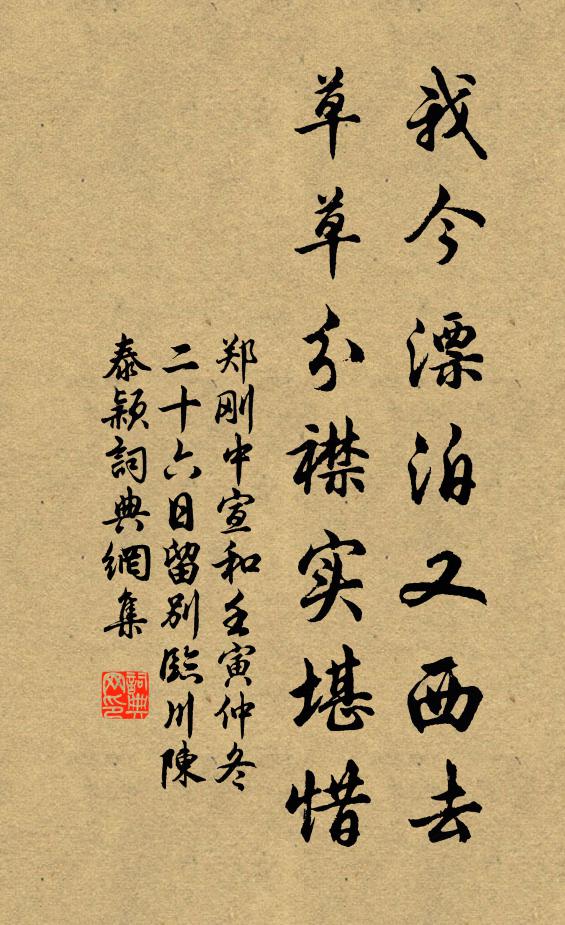 我今漂泊又西去
草草分襟实堪惜
郑刚中宣和壬寅仲冬
二十六日留别臨川陳
泰颖詞典網集
詞典
网印